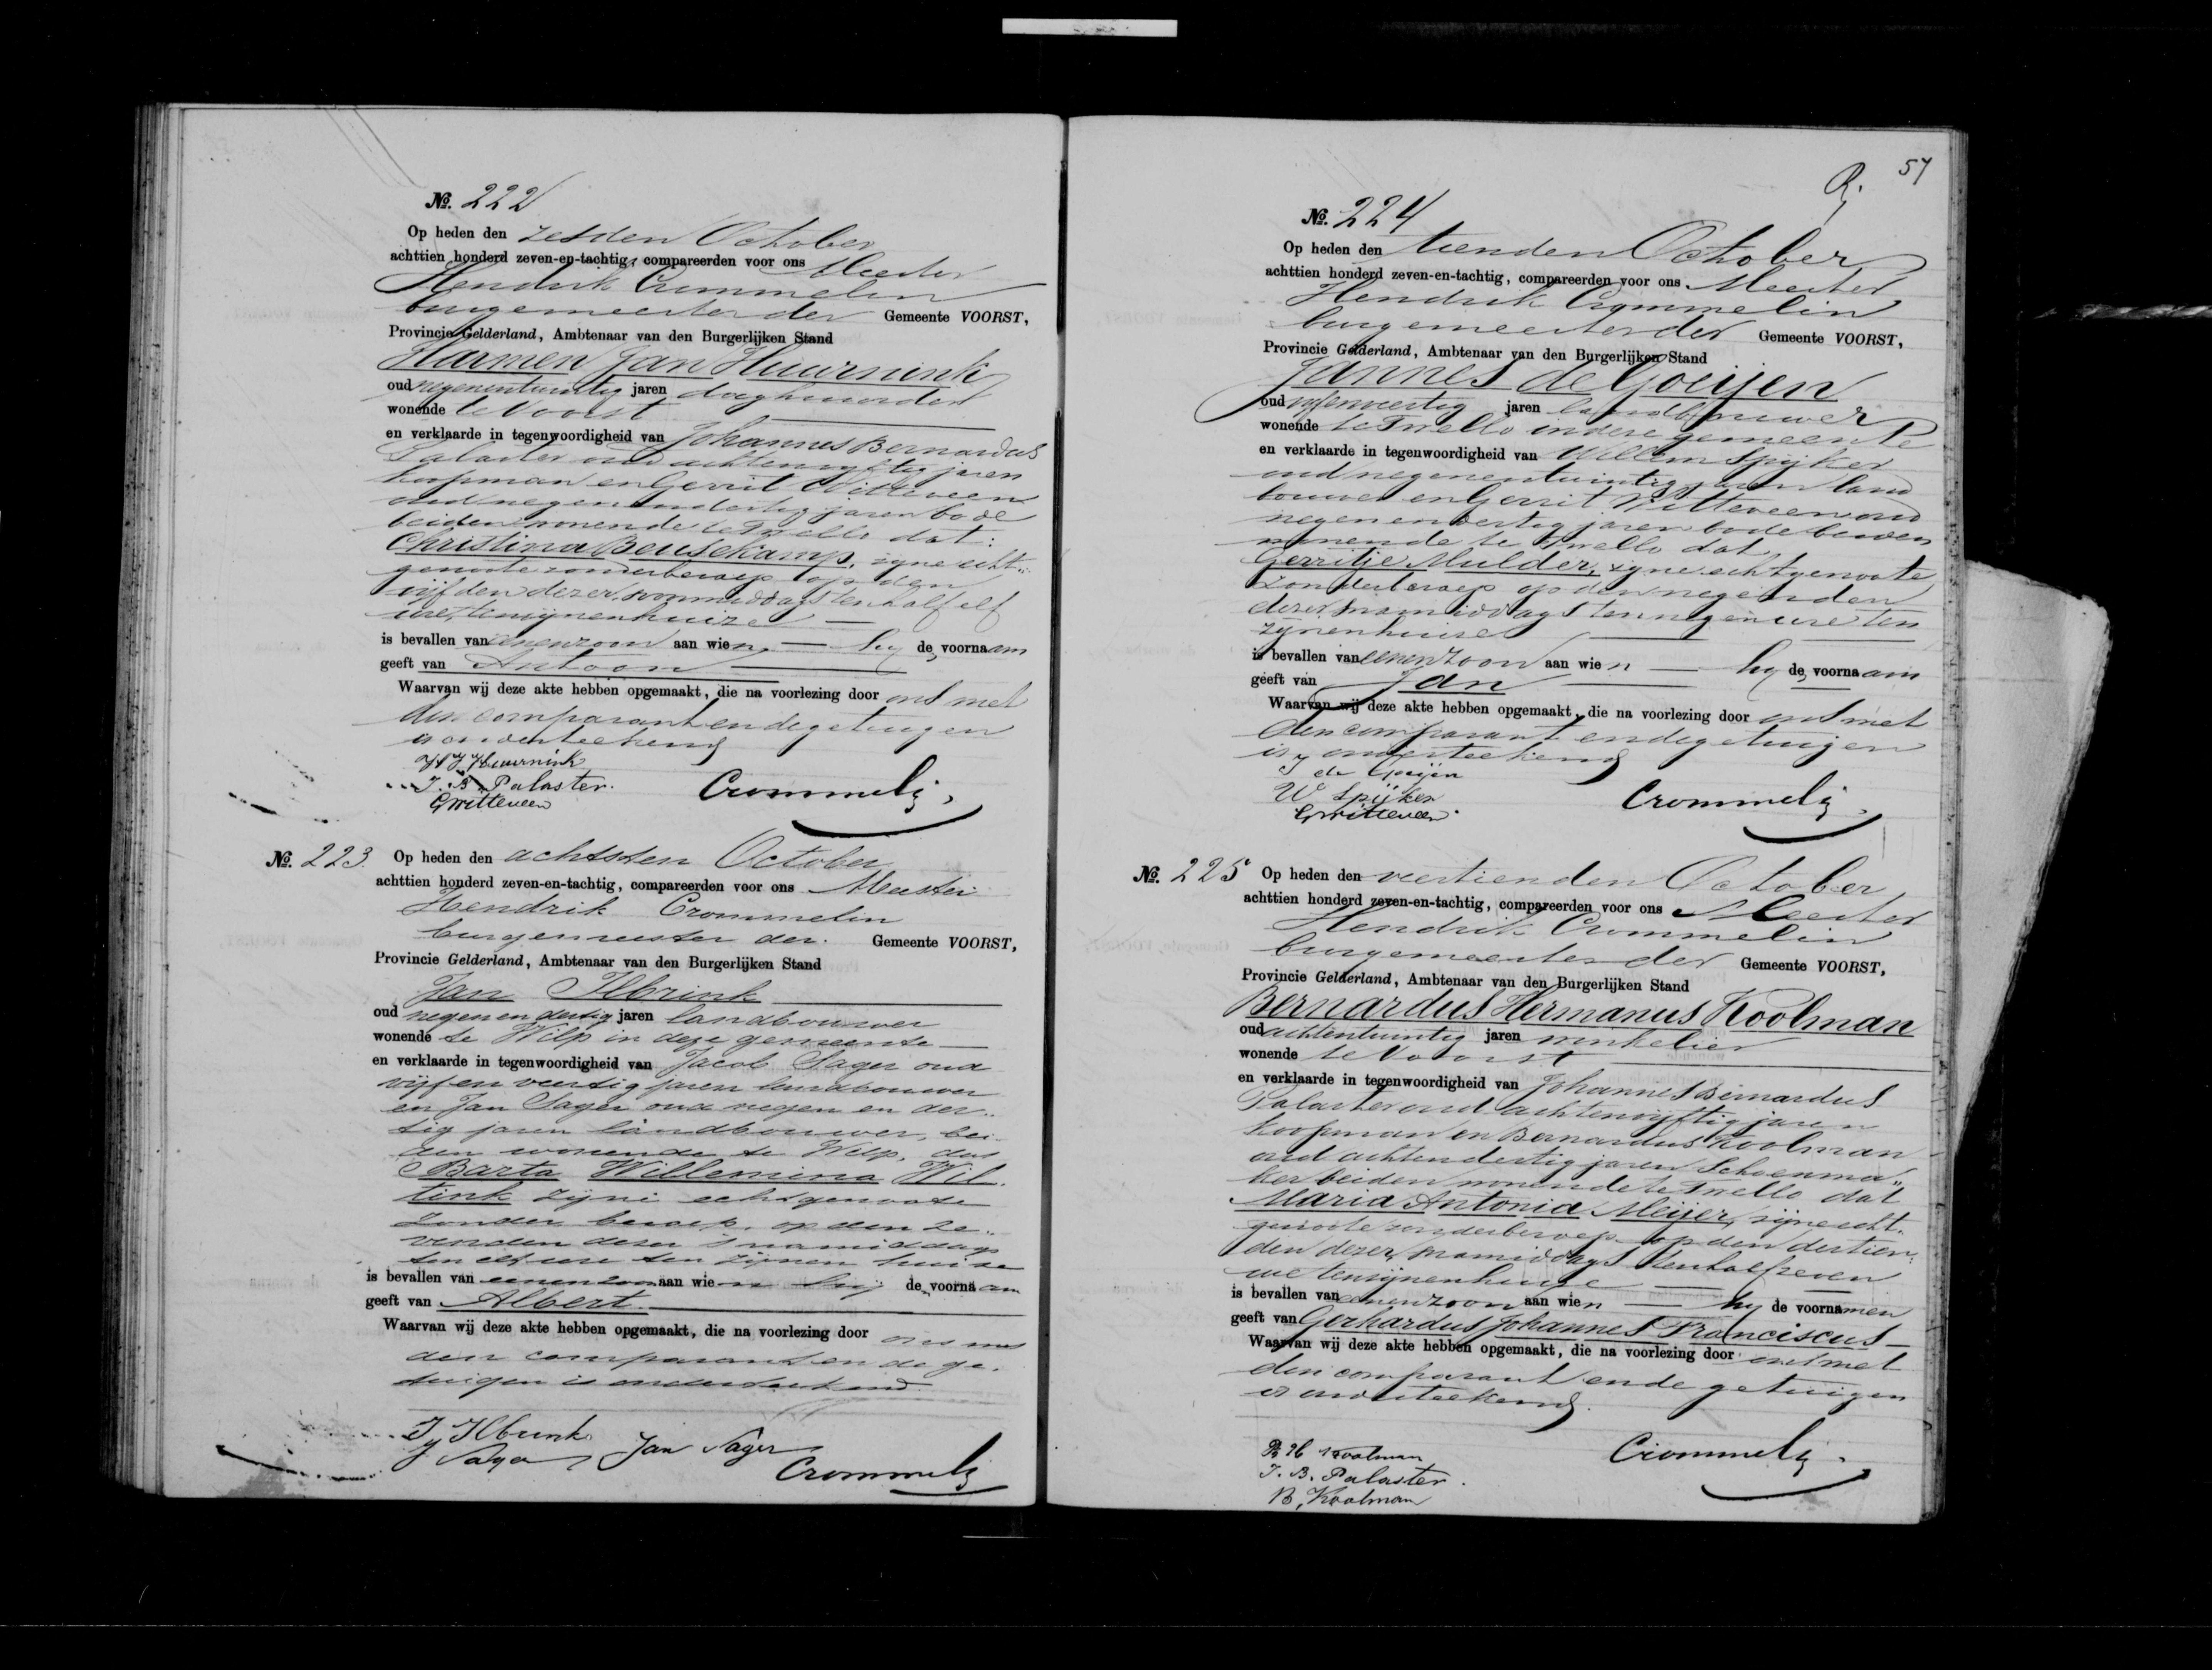 №. 222
Op heden den zesden October
achttien honderd zeven-en-tachtig, compareerden voor ons Meester
Hendrik Crommelin
burgemeester der Gemeente VOORST,
Provincie Gelderland, Ambtenaar van den Burgerlijken Stand
Harmen Jan Heurnink
oud negenentwintig jaren daghuurder
wonende te Voorst
en verklaarde in tegenwoordigheid van Johannes Bernardus
Palaster oud achtenvijftig jaren
koopman en Gerrit Witteveen
oud negenendertig jaren bode
beiden wonende te Twello dat:
Christina Beusekamp, zijne echt-
genoote zonder beroep op den
vijfden dezer voormiddags ten half elf
ure, ten zijnen huize
is bevallen van eenen zoon aan wien hij de voornaam
geeft van Antoon
Waarvan wij deze akte hebben opgemaakt, die na voorlezing door ons met
den comparant en de getuigen
is onderteekend
HJ Heurnink
J. B. Palaster.
GWitteveen
Crommelin
№. 223.
Op heden den achtsten October
achttien honderd zeven-en-tachtig, compareerden voor ons Meester
Hendrik Crommelin
burgemeester der Gemeente VOORST,
Provincie Gelderland, Ambtenaar van den Burgerlijken Stand
Jan Ilbrink
oud negen en dertig jaren landbouwer
wonende te Wilp in deze gemeente
en verklaarde in tegenwoordigheid van Jacob Sager oud
vijf en veertig jaren landbouwer
en Jan Sager oud negen en der-
tig jaren landbouwer, bei-
den wonende te Wilp, dat
Barta Willemina Wil-
tink zijne echtgenoote
zonder beroep, op den ze-
venden dezer 's namiddags
ten elf ure ten zijnen huize
is bevallen van eenen zoon aan wien hij de voornaam
geeft van Albert
Waarvan wij deze akte hebben opgemaakt, die na voorlezing door ons met
den comparant en de ge-
tuigen is onderteekend.
J Ilbrink
J Sager Jan Sager
Crommelin
57
R.
№. 224
Op heden den tienden October
achttien honderd zeven-en-tachtig, compareerden voor ons Meester
Hendrik Crommelin
burgemeester der Gemeente VOORST,
Provincie Gelderland, Ambtenaar van den Burgerlijken Stand
Jannes de Goeijen
oud vijfenveertig jaren landbouwer
wonende te Twello in deze gemeente
en verklaarde in tegenwoordigheid van Willem Spijker
oud negenentwintig jaren land
bouwer en Gerrit Witteveen oud
negenendertig jaren bode beiden
wonende te Twello dat
Gerritje Mulder, zijne echtgenoote
zonder beroep op den negenden
dezer namiddags ten negen ure ten
zijnen huize
is bevallen van eenen zoon aan wien hij de voornaam
geeft van Jan
Waarvan wij deze akte hebben opgemaakt, die na voorlezing door ons met
den comparant en de getuigen
is onderteekend
J de Goeijen
W Spijker
GWitteveen
Crommelin
№. 225
Op heden den veertienden October
achttien honderd zeven-en-tachtig, compareerden voor ons Meester
Hendrik Crommelin
burgemeester der Gemeente VOORST,
Provincie Gelderland, Ambtenaar van den Burgerlijken Stand
Bernardus Hermanus Koolman
oud achtentwintig jaren winkelier
wonende te Voorst
en verklaarde in tegenwoordigheid van Johannes Bernardus
Palaster oud achtenvijftig jaren
koopman en Bernardus Koolman
oud achtendertig jaren Schoenma-
ker beiden wonende te Twello dat
Maria Antonia Meijer, zijne echt-
genoote zonder beroep op den dertien-
den dezer, namiddags ten half zeven
ure ten zijnen huize
is bevallen van eenen zoon aan wien hij de voornamen
geeft van Gerhardus Johannes Franciscus
Waarvan wij deze akte hebben opgemaakt, die na voorlezing door ons met
den comparant en de getuigen
is onderteekend.
B H Koolman
J. B. Palaster.
B. Koolman
Crommelin